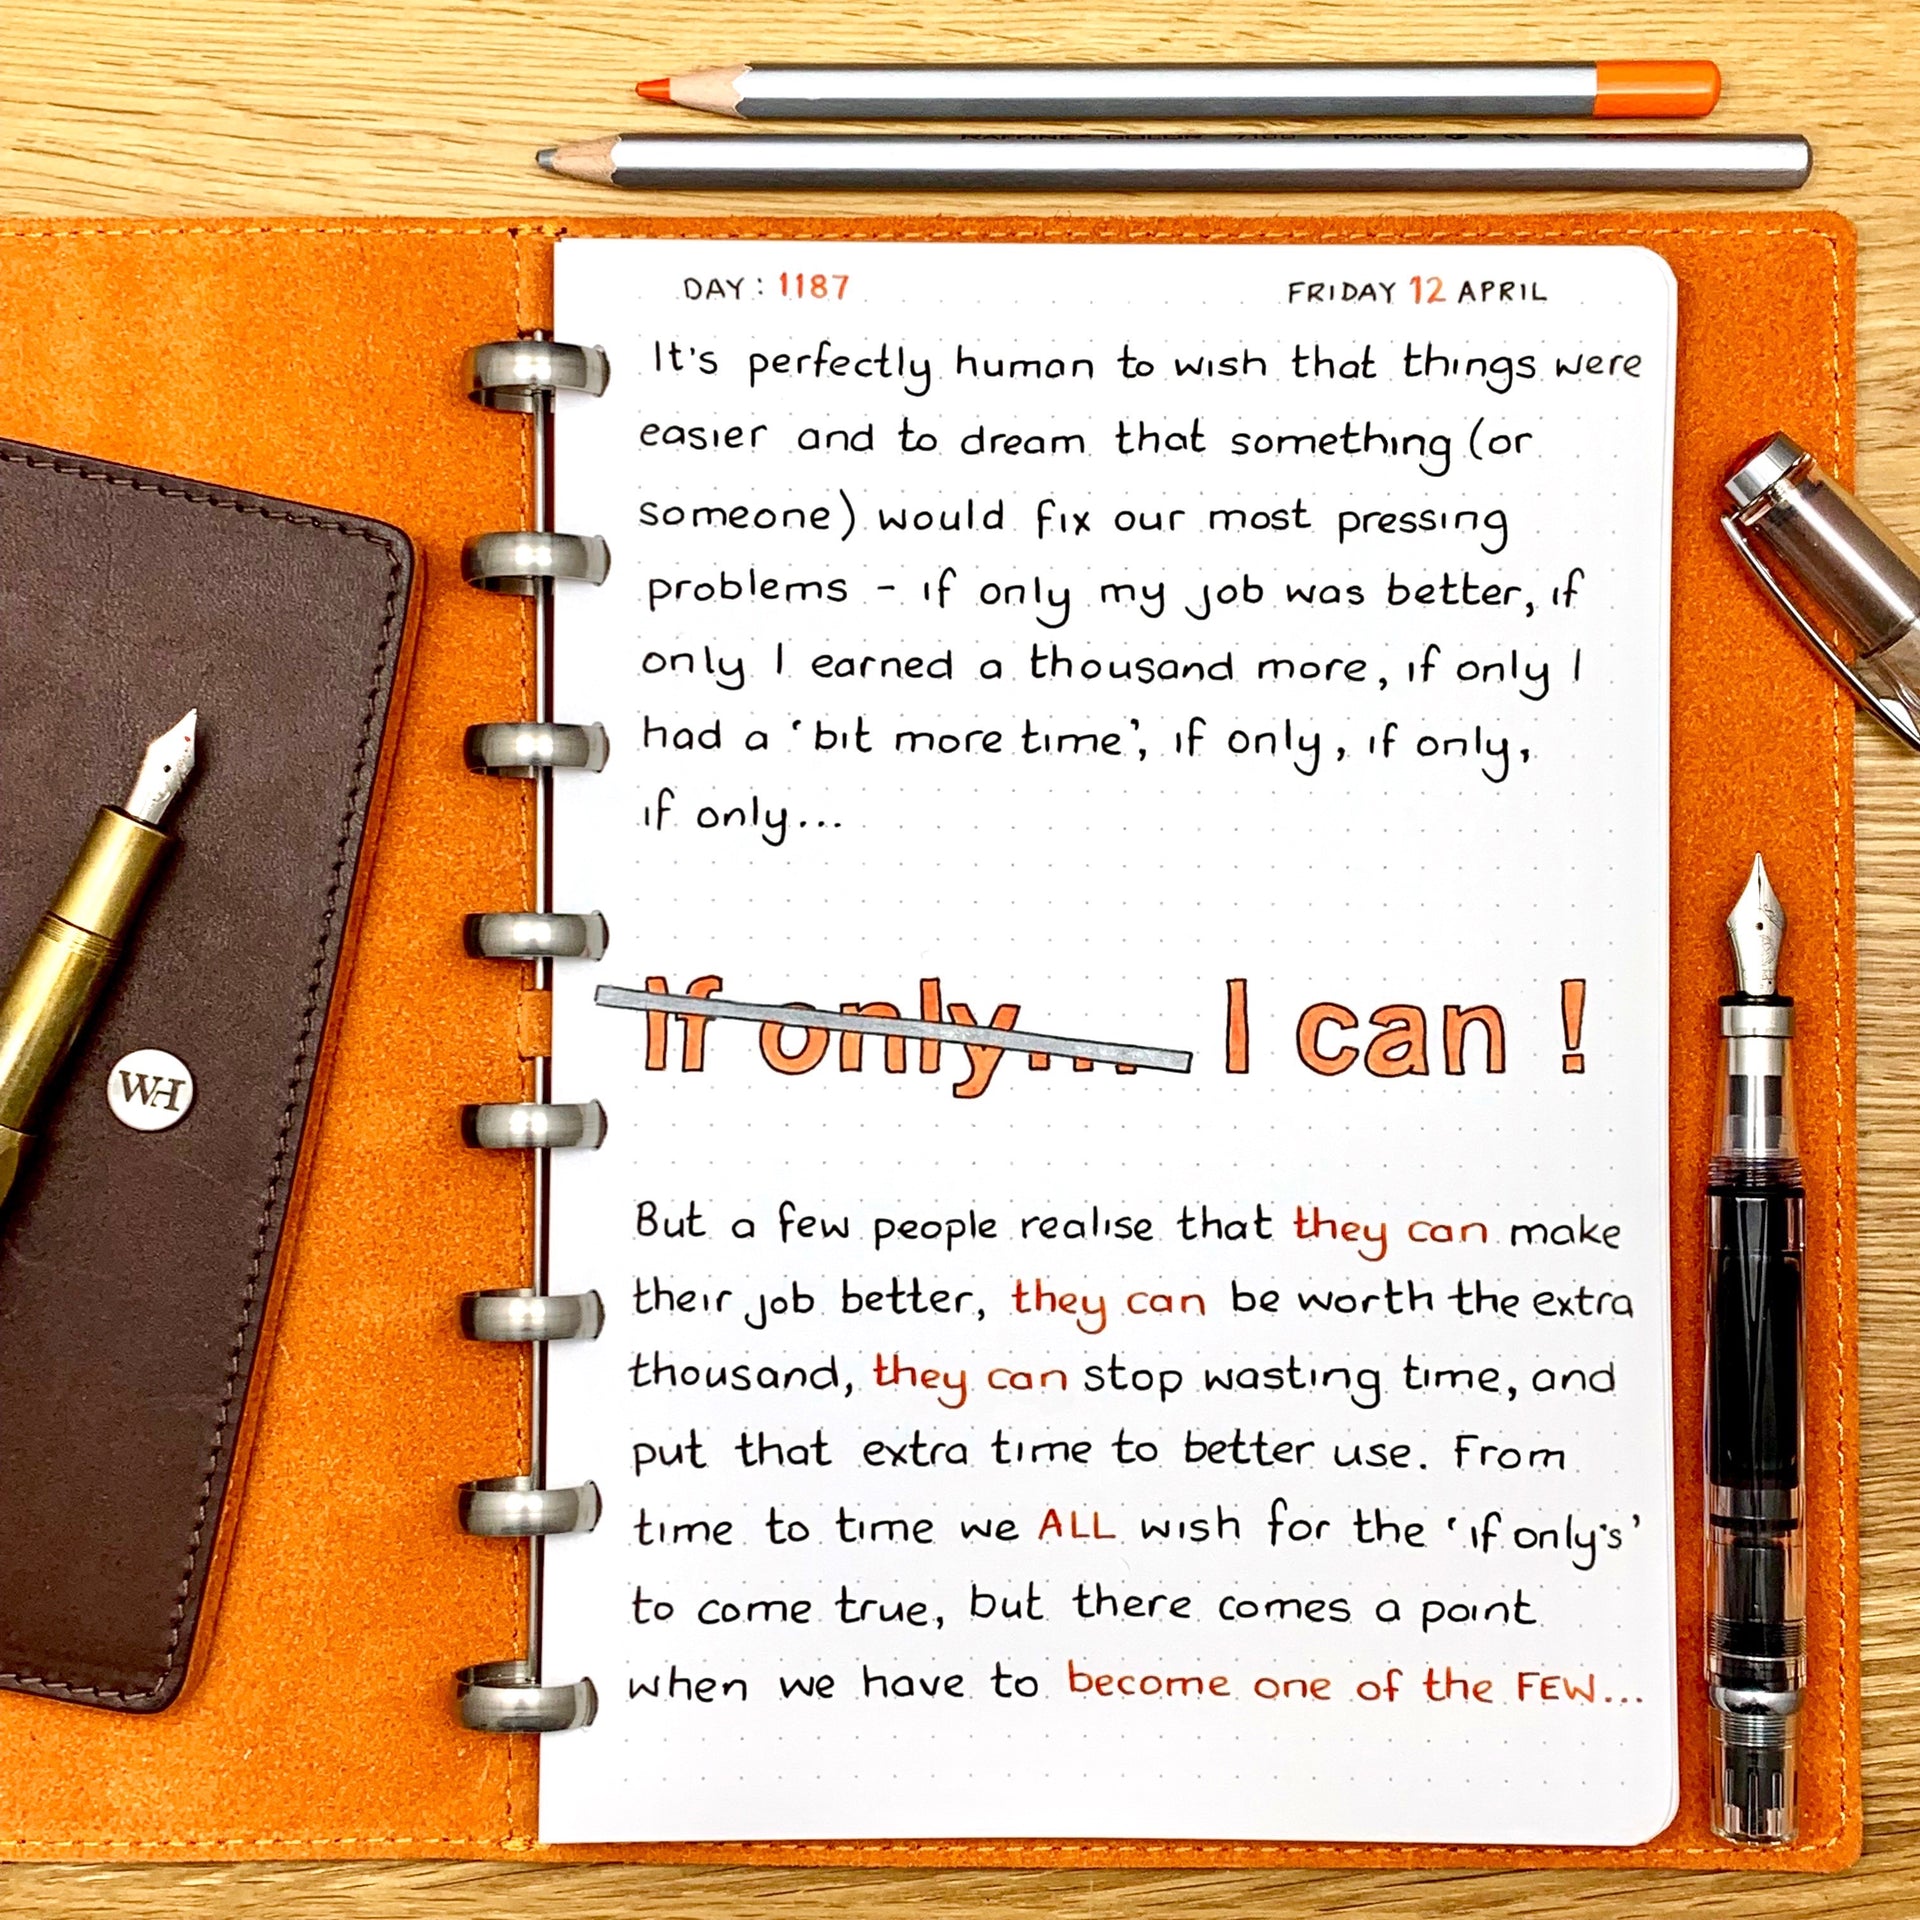 DAY: 1187
FRIDAY 12 APRIL
It's perfectly human to wish that things were
easier and to dream that something (or
someone) would fix our most pressing
problems - if only my job was better, if
only I earned a thousand more, if only I
had a 'bit more time', if only, if only,
if only...
If only... I can !
But a few people realise that they can make
their job better, they can be worth the extra
thousand, they can stop wasting time, and
put that extra time to better use. From
time to time we ALL wish for the 'if only's'
to come true, but there comes a point
when we have to become one of the FEW...
WH